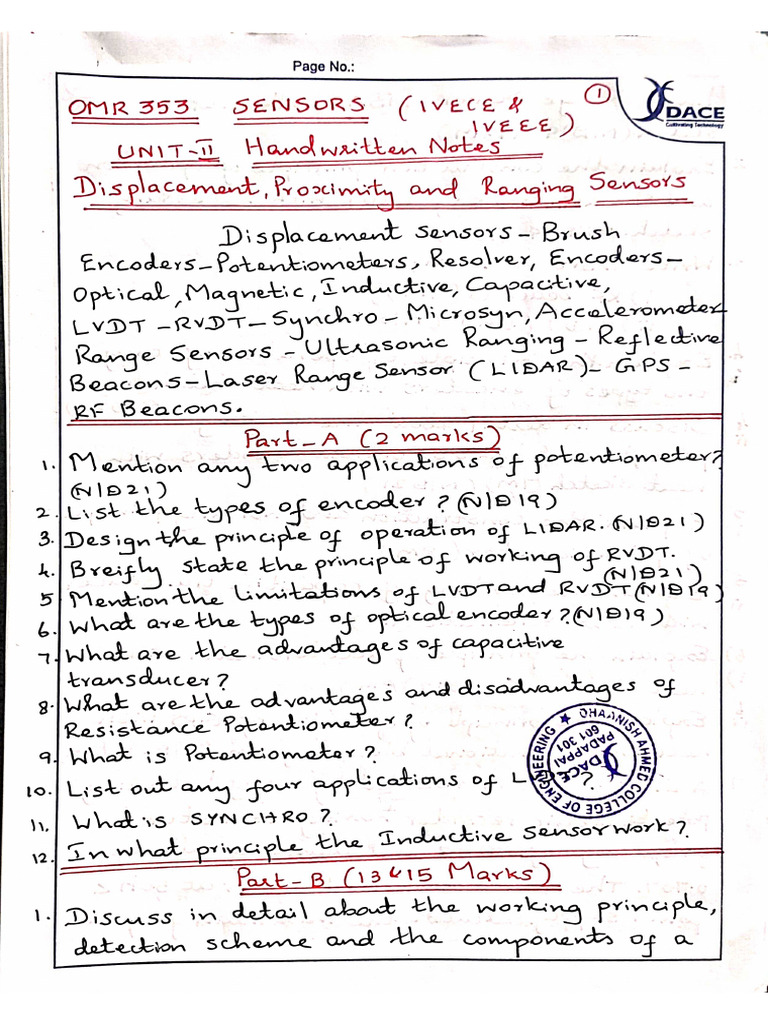 Page No.:
①
DACE
Cultivating Technology
OMR 353 SENSORS (IVECE &
IVEEE)
UNIT-II Handwritten Notes
Displacement, Proximity and Ranging Sensors
Displacement sensors - Brush
Encoders - Potentiometers, Resolver, Encoders -
Optical, Magnetic, Inductive, Capacitive,
LVDT - RVDT - Synchro - Microsyn, Accelerometer
Range Sensors - Ultrasonic Ranging - Reflective
Beacons - Laser Range Sensor (LIDAR) - GPS -
RF Beacons.
Part-A (2 marks)
1. Mention any two applications of potentiometer?
(N/D21)
2. List the types of encoder? (N/D19)
3. Design the principle of operation of LIDAR. (N/D21)
4. Breifly state the principle of working of RVDT.
(N/D21)
5. Mention the limitations of LVDT and RVDT (N/D19)
6. What are the types of optical encoder? (N/D19)
7. What are the advantages of capacitive
transducer?
8. What are the advantages and disadvantages of
Resistance Potentiometer?
9. What is Potentiometer?
10. List out any four applications of ?
11. What is SYNCHRO?
12. In what principle the Inductive Sensor work?
DHAANISH AHMED COLLEGE OF ENGINEERING
DACE
PADAPPAI
601 301
Part-B (13 & 15 Marks)
1. Discuss in detail about the working principle,
detection scheme and the components of a